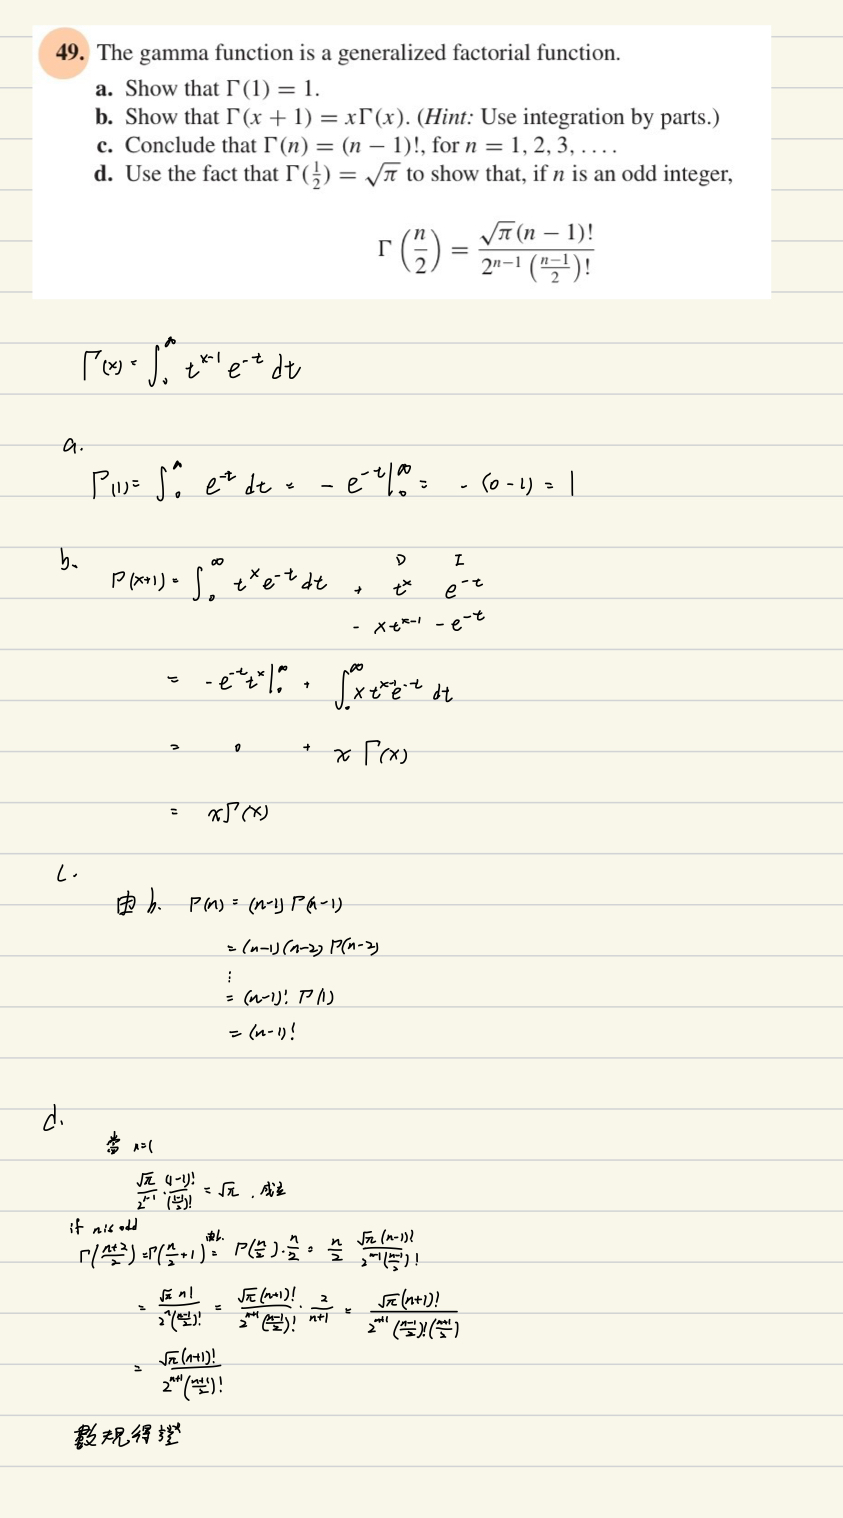 49. The gamma function is a generalized factorial function.
a. Show that Γ(1) = 1.
b. Show that Γ(x + 1) = xΓ(x). (Hint: Use integration by parts.)
c. Conclude that Γ(n) = (n − 1)!, for n = 1, 2, 3, . . . .
d. Use the fact that Γ(1/2) = √π to show that, if n is an odd integer,
Γ(n/2) = √π(n − 1)! / 2^(n−1) ((n−1)/2)!
Γ(x) = ∫₀^∞ t^(x-1) e^(-t) dt
a.
Γ(1) = ∫₀^∞ e^(-t) dt = - e^(-t) |₀^∞ = - (0 - 1) = 1
b.
Γ(x+1) = ∫₀^∞ t^x e^(-t) dt
D I
+ t^x e^(-t)
- x t^(x-1) - e^(-t)
= - e^(-t) t^x |₀^∞ + ∫₀^∞ x t^(x-1) e^(-t) dt
= 0 + x Γ(x)
= x Γ(x)
c.
由 b. Γ(n) = (n-1) Γ(n-1)
= (n-1)(n-2) Γ(n-2)
⋮
= (n-1)! Γ(1)
= (n-1)!
d.
當 n=1
√π/2^(1-1) · (1-1)!/((1-1)/2)! = √π . 成立
if n is odd
Γ((n+2)/2) = Γ(n/2 + 1) 由b. = Γ(n/2) · n/2 = n/2 √π (n-1)! / 2^(n-1) ((n-1)/2)!
= √π n! / 2^n ((n-1)/2)! = √π (n+1)! / 2^(n+1) ((n-1)/2)! · 2/(n+1) = √π (n+1)! / 2^(n+1) ((n-1)/2)! ((n+1)/2)
= √π (n+1)! / 2^(n+1) ((n+1)/2)!
數規得證